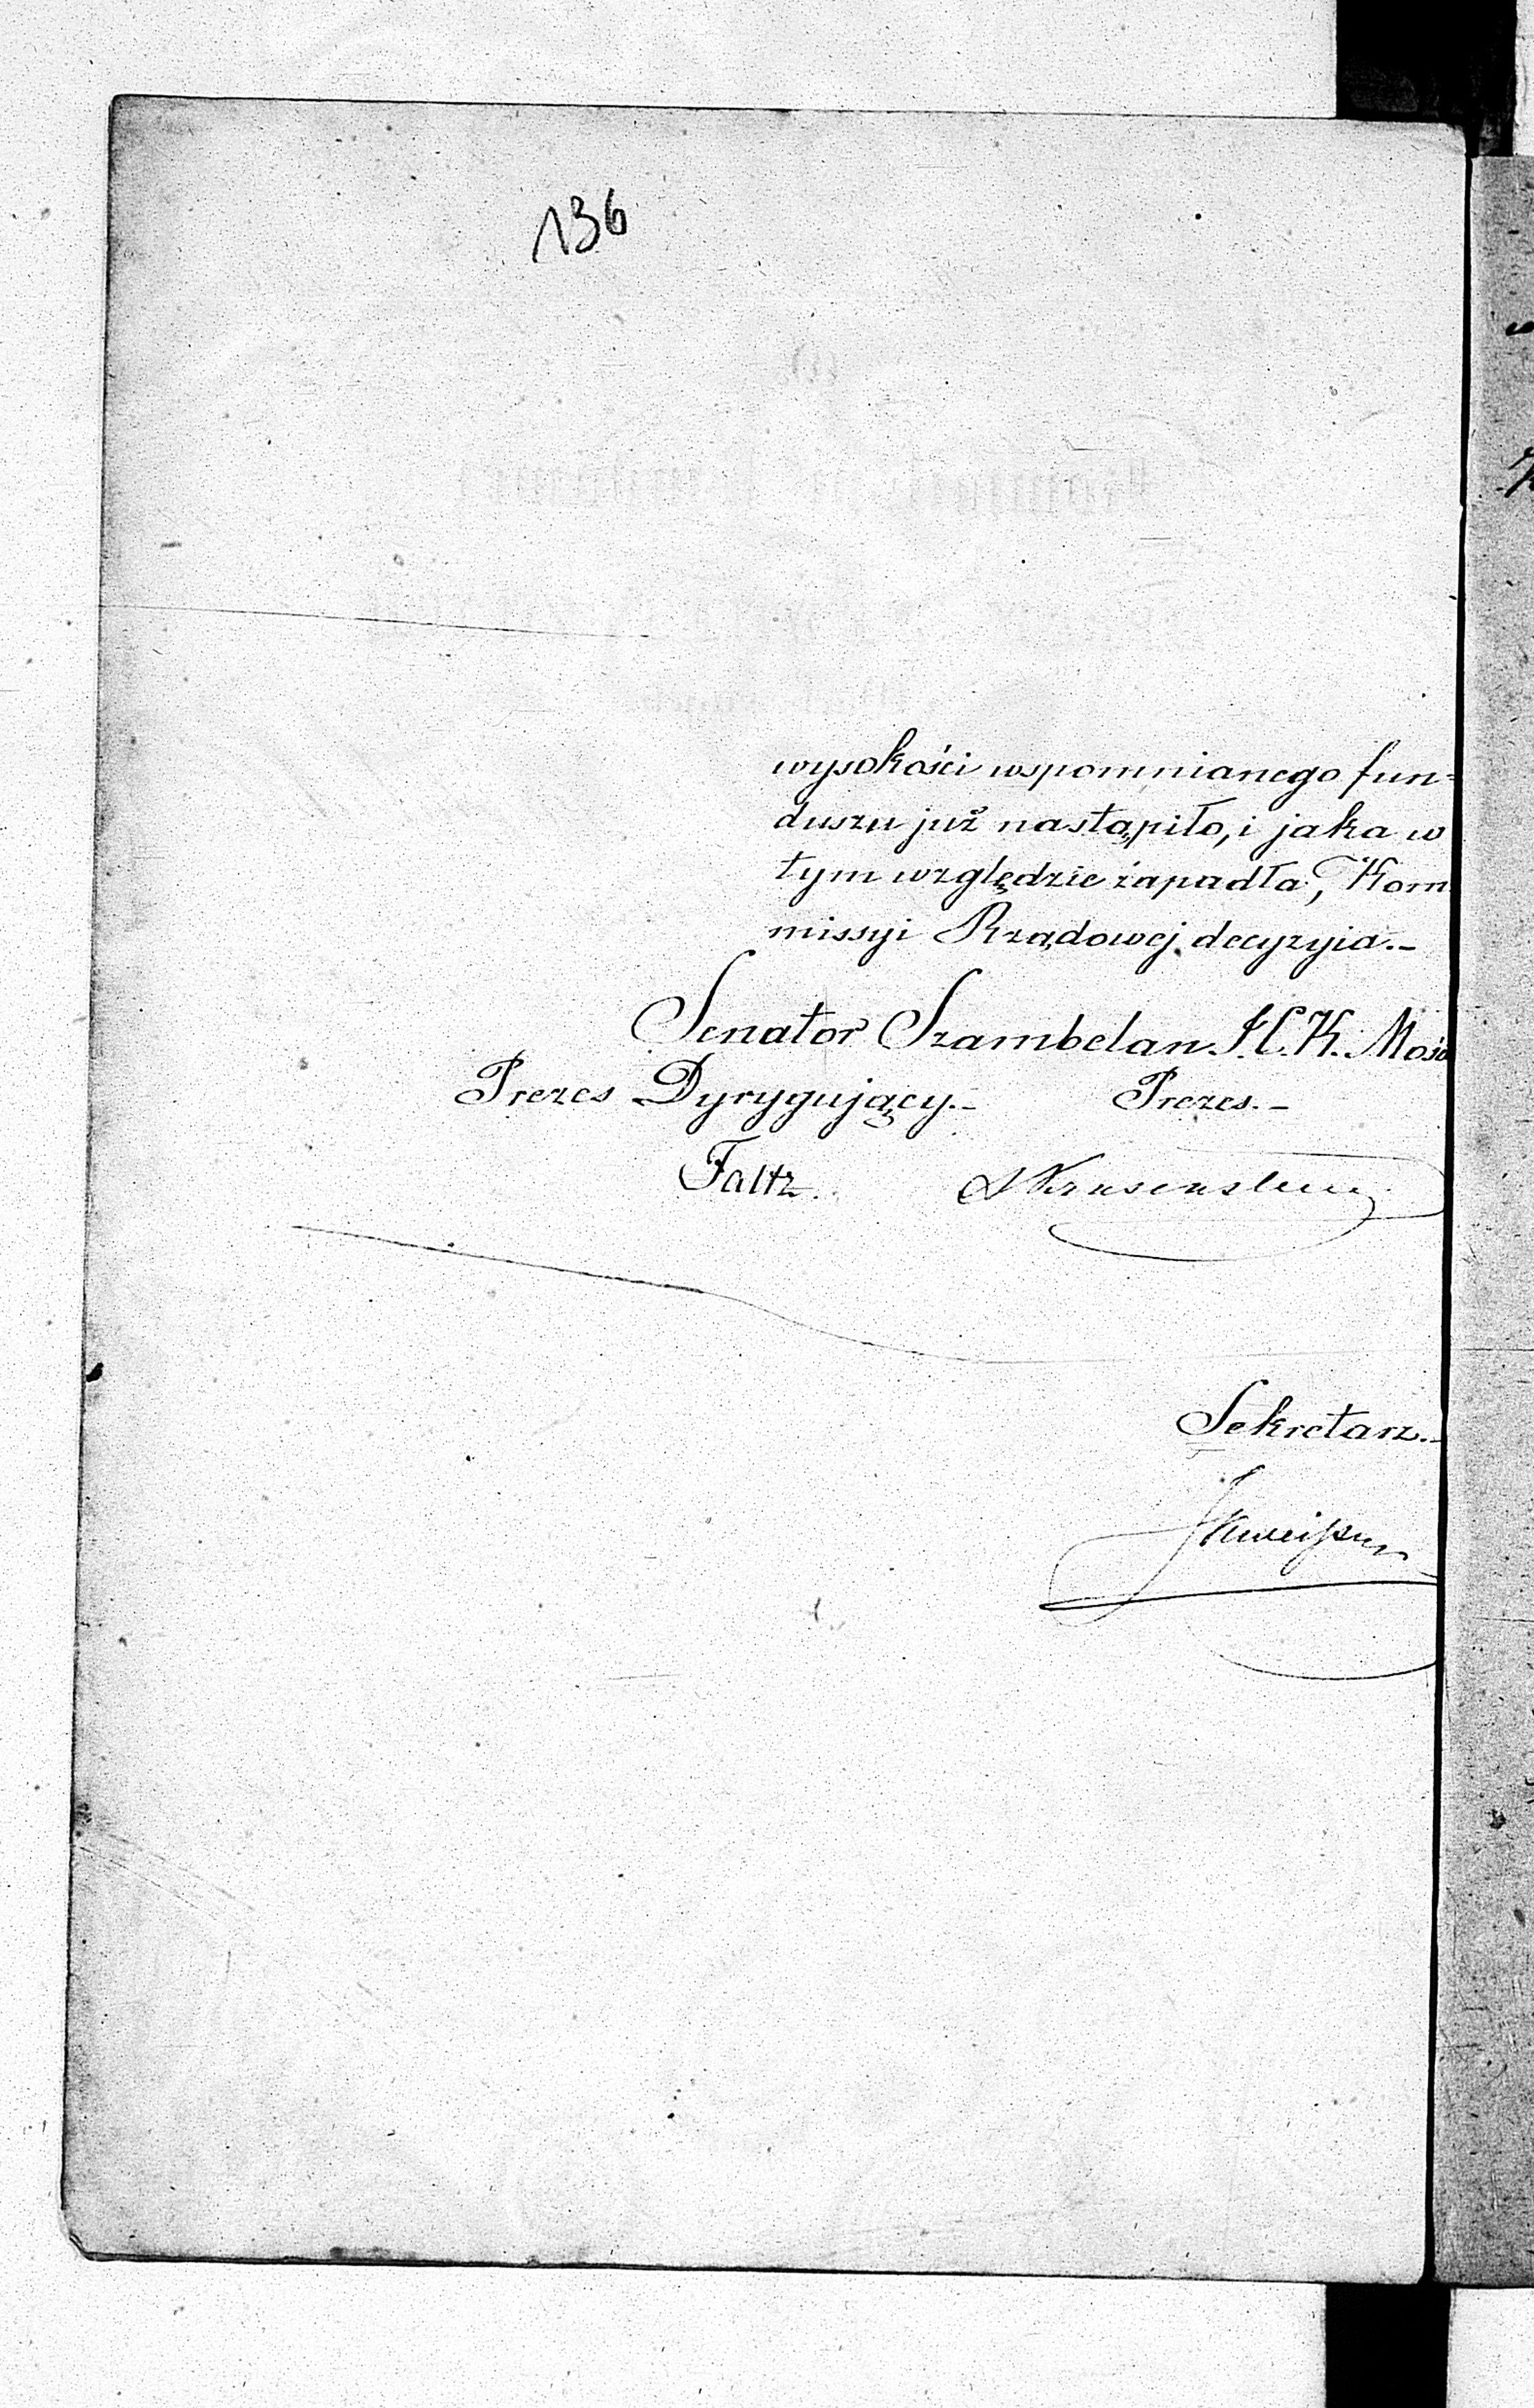 136
wysokości wspomnianego fun=
duszu już nastąpiło, i jaka w
tym względzie zapadła, Kom
missyi Rządowej decyzyia.-
Senator Szambelan J.C.K. Mości
Prezes Dyrygujący.- Prezes.-
Faltz.
Sekretarz.-